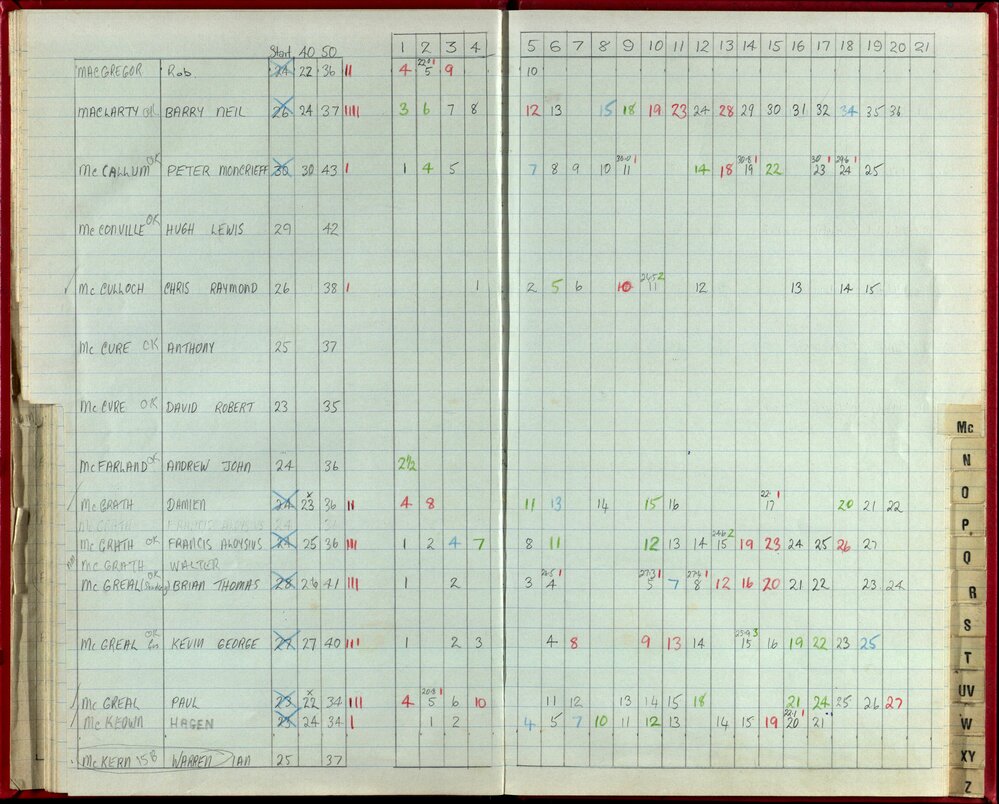 Start 40 50 1 2 3 4 5 6 7 8 9 10 11 12 13 14 15 16 17 18 19 20 21
MACGREGOR Rob 24 22 36 II 4 22-0 1 5 9 10
MACLARTY OK BARRY NEIL 26 24 37 IIII 3 6 7 8 12 13 15 18 19 23 24 28 29 30 31 32 34 35 36
Mc CALLUM OK PETER MONCRIEFF 30 30 43 I 1 4 5 7 8 9 10 30-0 1 11 14 18 30-8 1 19 22 30 1 23 29-6 1 24 25
Mc CONVILLE OK HUGH LEWIS 29 42
Mc CULLOCH CHRIS RAYMOND 26 38 I 1 2 5 6 10 26-5 2 11 12 13 14 15
Mc CURE OK ANTHONY 25 37
Mc CURE OK DAVID ROBERT 23 35
McFARLAND OK ANDREW JOHN 24 36 2½
Mc GRATH DAMIEN 24 x 23 36 II 4 8 11 13 14 15 16 22- 1 17 20 21 22
Mc GRATH FRANCIS ALOYSIUS 24 37
Mc GRATH OK FRANCIS ALOYSIUS 24 25 36 III 1 2 4 7 8 11 12 13 14 24-6 2 15 19 23 24 25 26 27
Mc GRATH WALTER
Mc GREAL OK (Sunbury) BRIAN THOMAS 28 26 41 III 1 2 3 26-5 1 4 27-3 1 5 7 27-9 1 8 12 16 20 21 22 23 24
Mc GREAL OK KEVIN GEORGE 27 27 40 III 1 2 3 4 8 9 13 14 25-9 3 15 16 19 22 23 25
Mc GREAL PAUL 23 x 22 34 III 4 20-8 1 5 6 10 11 12 13 14 15 18 21 24 25 26 27
Mc KEOWN HAGEN 25 24 34 I 1 2 4 5 7 10 11 12 13 14 15 19 22-1 1 20 21
Mc KERN 15B WARREN IAN 25 37
Mc
N
O
P
Q
R
S
T
UV
W
XY
Z